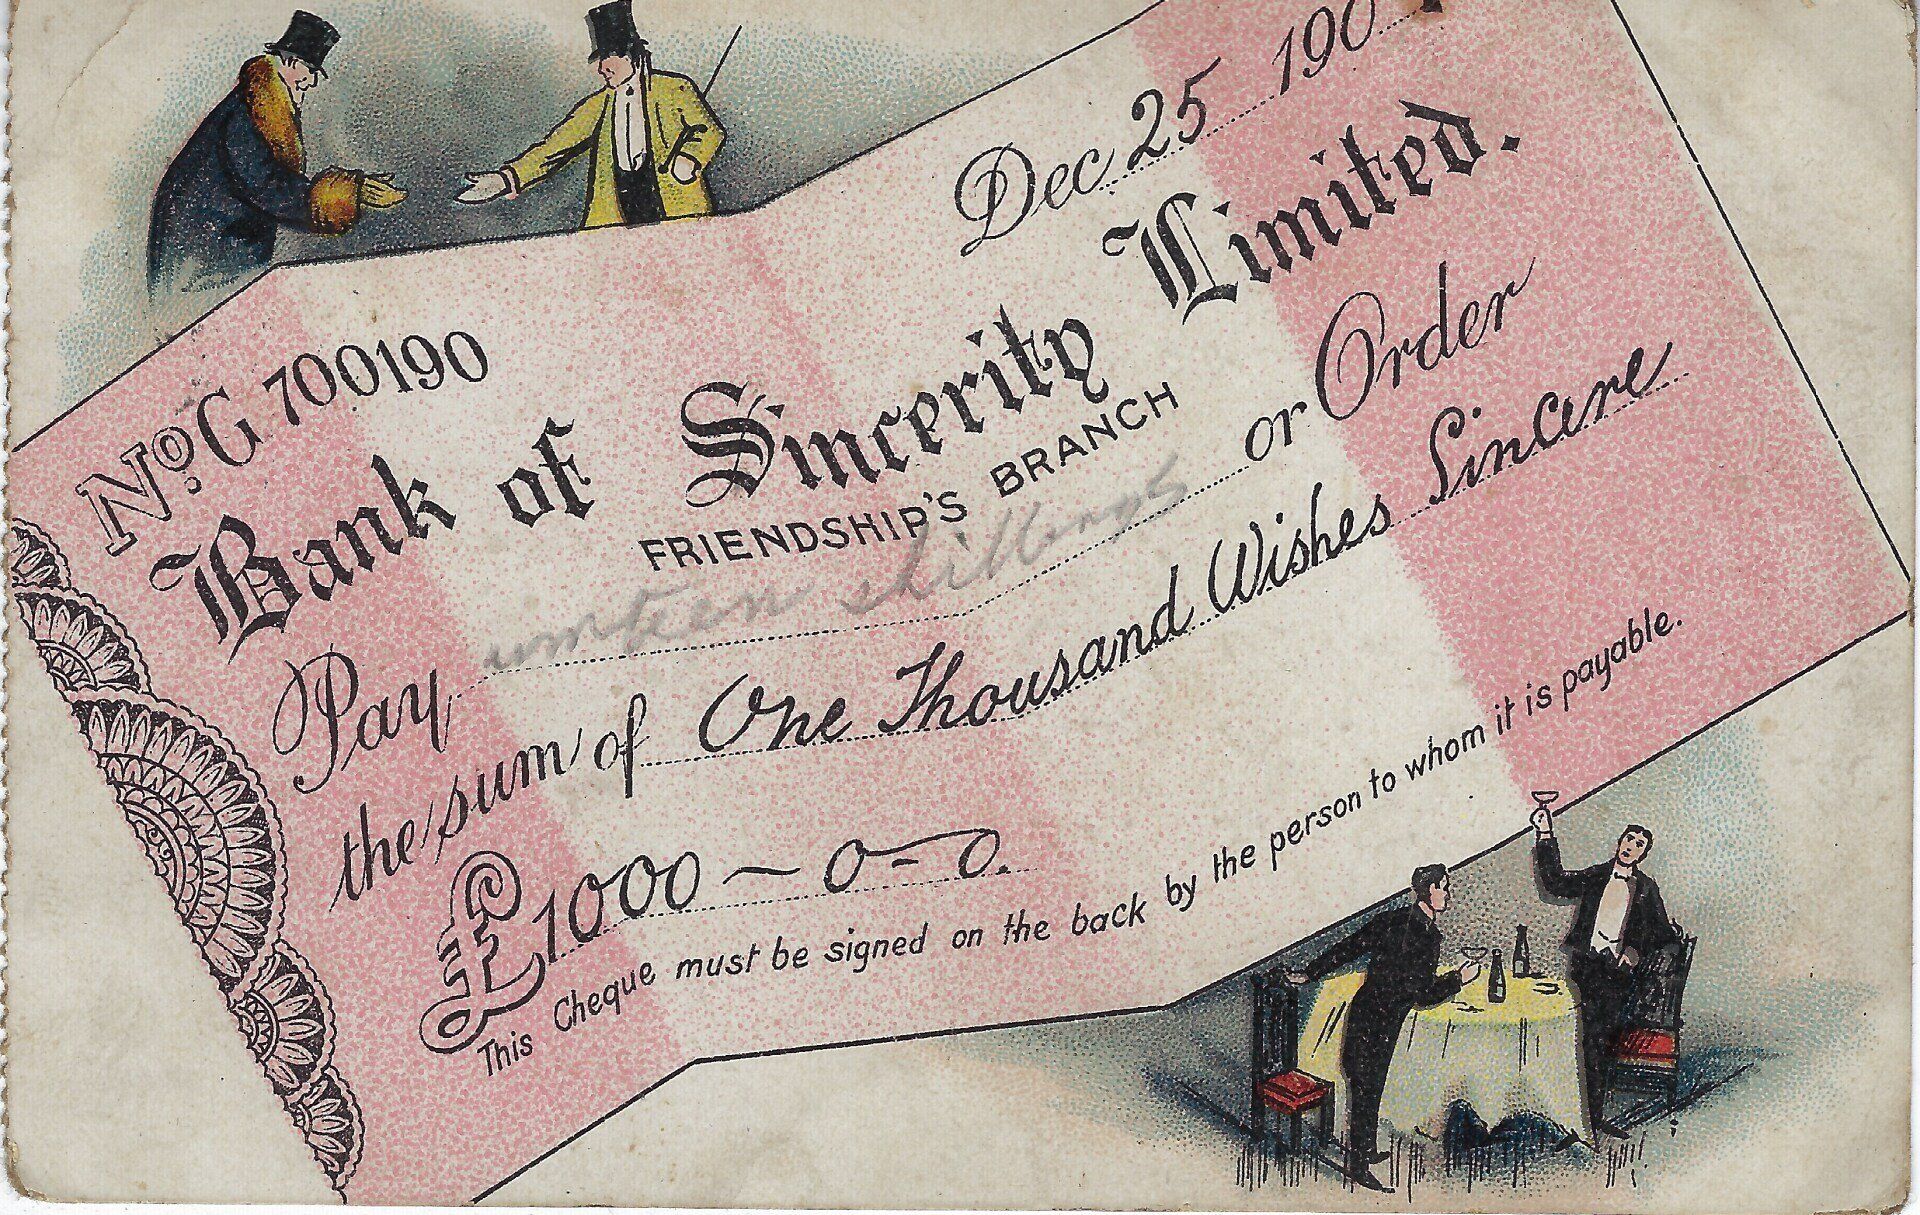 Dec 25 190
No. G 700190
Bank of Sincerity Limited.
FRIENDSHIP'S BRANCH
Pay umteen shillings or Order
the sum of One Thousand Wishes Sincere
£1000~0-0.
This Cheque must be signed on the back by the person to whom it is payable.